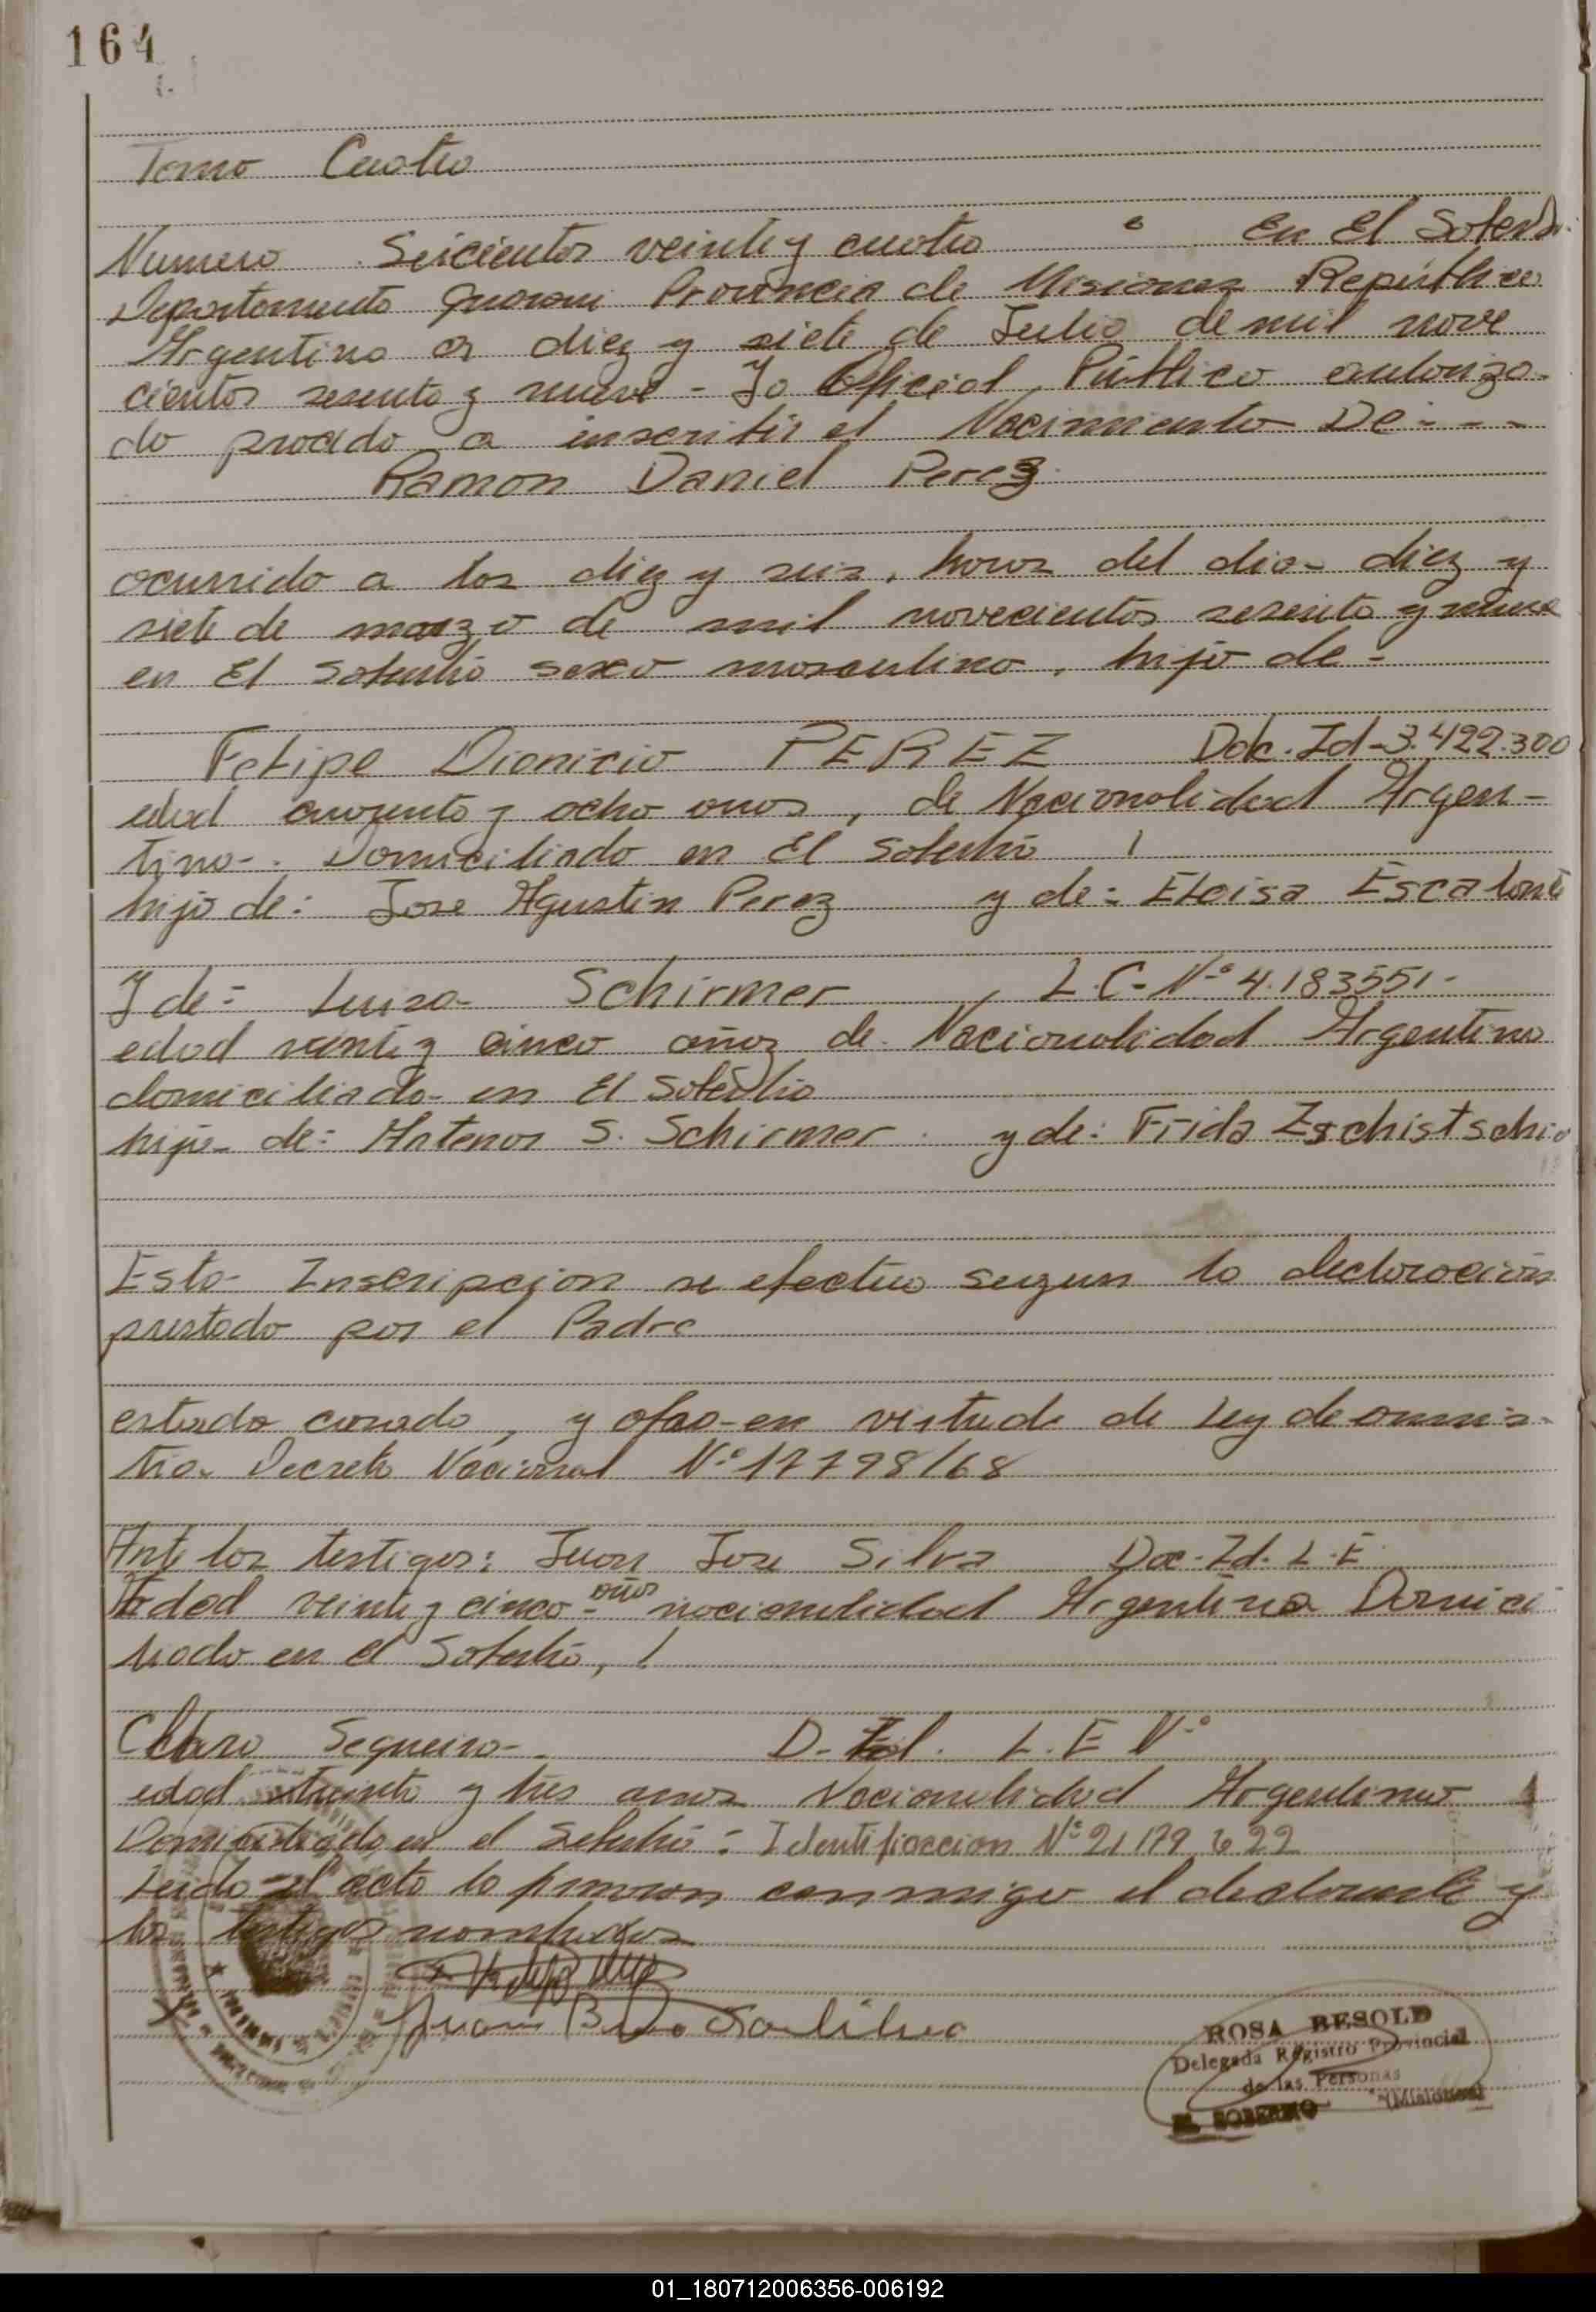 164
Tomo Cuatro
Numero Seicientos veinte y cuatro En El Soberbio
Departamento Guarani Provincia de Misiones República
Argentina a diez y siete de Julio de mil nove
cientos sesenta y nueve - Yo Oficial Público autoriza-
do procedo a inscribir el Nacimiento De - - -
Ramon Daniel Perez
ocurrido a las diez y seis, horas del dia diez y
siete de marzo de mil novecientos sesenta y nueve
en El Soberbio sexo masculino, hijo de -
Felipe Dionicio PEREZ Dok. Id - 3.422.300
edad cuarenta y ocho anos, de Nacionalidad Argen-
tino-. Domiciliado en El Soberbio
hijo de: Jose Agustin Perez y de: Eloisa Escalante
Y de: Luisa Schirmer L.C. Nº 4.183551-
edad veinte y cinco años de Nacionalidad Argentina
domiciliada en El Soberbio
hija de: Antenor S. Schirmer y de: Frida Zschistschi
Esta Inscripcion se efectua segun la declaracion
prestada por el Padre
estado casado, y ofac-en virtude de Ley de amnis-
tia. Decreto Nacional Nº 17798/68
Ante los testigos: Juan Jose Silva Doc. Id. L.E.
Edad veinte y cinco años nacionalidad Argentina Domici
liado en el Soberbio,
Claro Sequeira D. Id. L.E Nº
edad treinta y tres anos Nacionalidad Argentino
Domiciliado en el Soberbio: Identificaccion Nº 21 179 622
Leido el acta lo firmaron conmigo el declarante y
los testigos nombrados
Juan
ROSA BESOLD
Delegada Registro Provincial
de las Personas
EL SOBERBIO (Misiones)
01_180712006356-006192